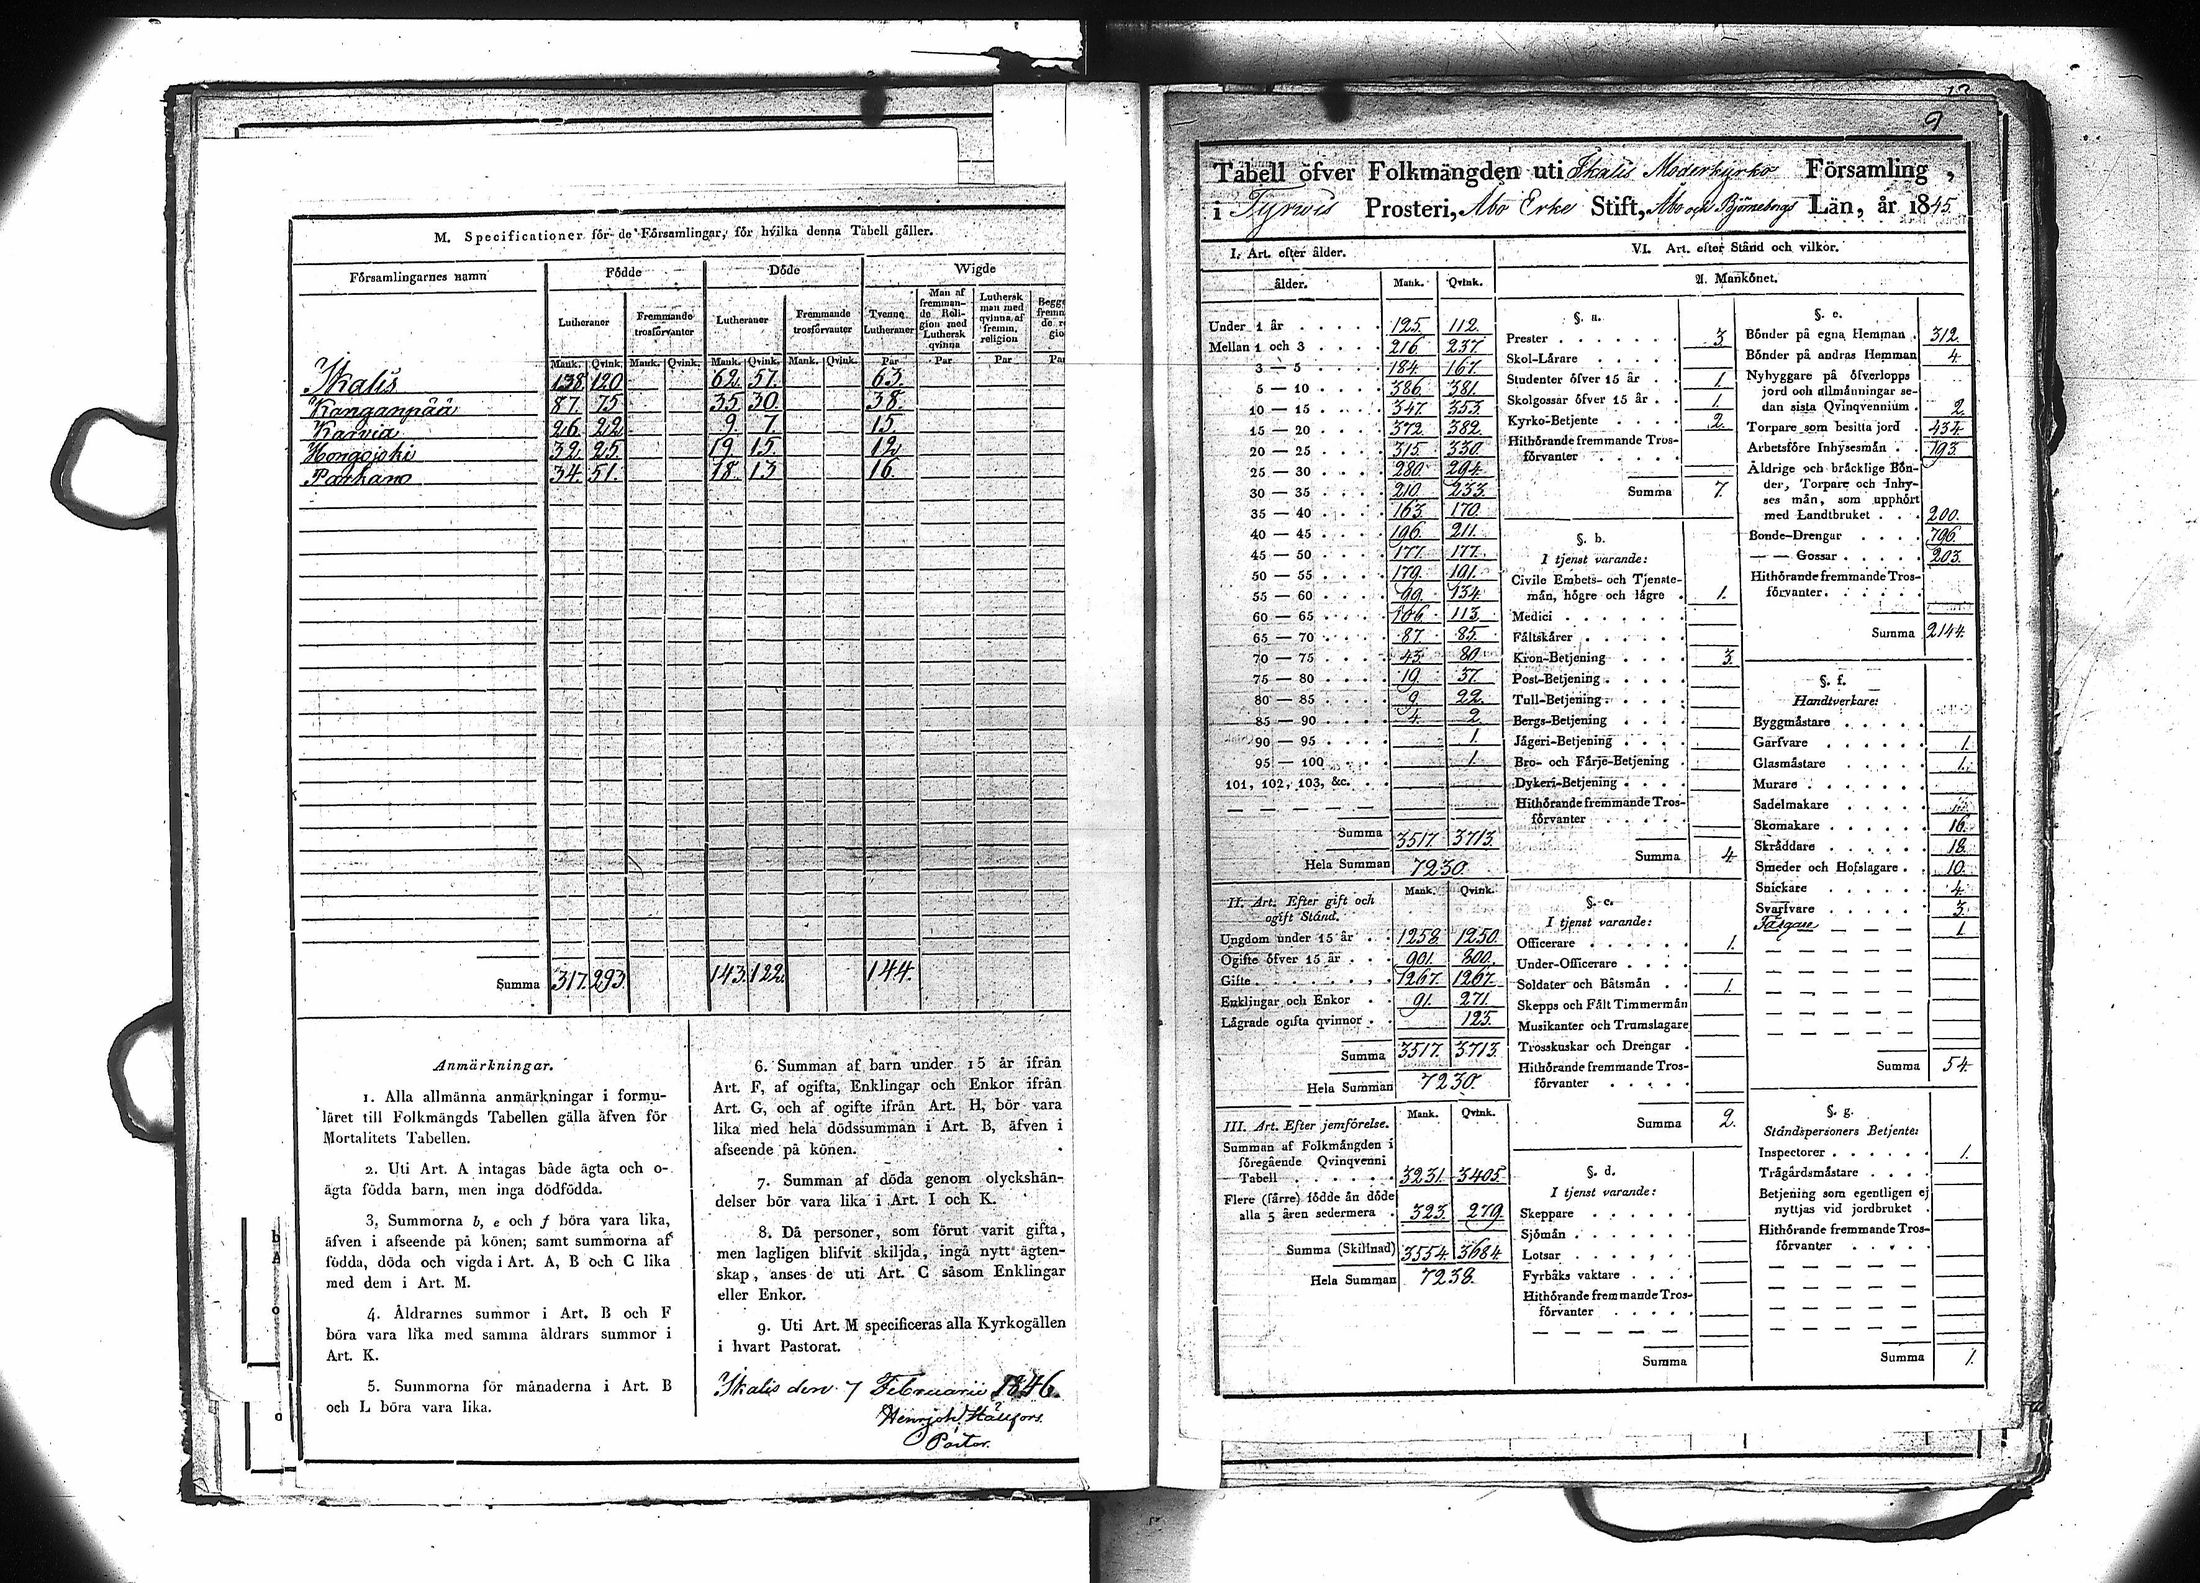 M. Specificationer för de Församlingar, för hvilka denna Tabell gäller.
Församlingarnes namn Födde Döde Wigde
Lutheraner Fremmande trosförvanter Lutheraner Fremmande trosförvanter Tvenne Lutheraner Man af fremmande Religion med Luthersk qvinna Luthersk man med qvinna af fremm. religion
Mank. Qvink. Mank. Qvink. Mank. Qvink. Mank. Qvink. Par Par Par
Ikalis 138. 120 62. 57. 63.
Kanganpää 87. 75 35. 30. 38.
Karvia 26 22 9. 7. 15.
Hongojoki 32 25 19. 15. 12
Parkano 34. 51. 18. 13 16.
Summa 317. 293. 143. 122. 144.
Anmärkningar.
1. Alla allmänna anmärkningar i formu-
läret till Folkmängds Tabellen gälla äfven för
Mortalitets Tabellen.
2. Uti Art. A intagas både ägta och o-
ägta födda barn, men inga dödfödda.
3. Summorna b, e och f böra vara lika,
äfven i afseende på könen; samt summorna af
födda, döda och vigda i Art. A, B och C lika
med dem i Art. M.
4. Åldrarnes summor i Art. B och F
böra vara lika med samma åldrars summor i
Art. K.
5. Summorna för månaderna i Art. B
och L böra vara lika.
6. Summan af barn under 15 år ifrån
Art. F, af ogifta, Enklingar och Enkor ifrån
Art. G, och af ogifte ifrån Art. H, bör vara
lika med hela dödssumman i Art. B, äfven i
afseende på könen.
7. Summan af döda genom olyckshän-
delser bör vara lika i Art. I och K.
8. Då personer, som förut varit gifta,
men lagligen blifvit skiljda, ingå nytt ägten-
skap, anses de uti Art. C såsom Enklingar
eller Enkor.
9. Uti Art. M specificeras alla Kyrkogällen
i hvart Pastorat.
Ikalis den 7 Februarii 1846.
Pastor.
9
Tabell öfver Folkmängden uti Ikalis Moderkyrko Församling,
i Tyrvis Prosteri, Åbo Erke Stift, Åbo och Björneborgs Län, år 1845
I. Art. efter ålder.
ålder. Mank. Qvink.
Under 1 år 125. 112.
Mellan 1 och 3 216. 237.
3 — 5 184. 167.
5 — 10 386. 381.
10 — 15 347. 353.
15 — 20 372. 382.
20 — 25 315. 330.
25 — 30 280. 294.
30 — 35 210. 233.
35 — 40 163. 170.
40 — 45 196. 211.
45 — 50 177. 177.
50 — 55 179. 191.
55 — 60 99. 134.
60 — 65 106. 113.
65 — 70 87. 85.
70 — 75 43. 80.
75 — 80 19. 37.
80 — 85 9. 22.
85 — 90 4. 2.
90 — 95 1.
95 — 100 1.
101, 102, 103, &c.
Summa 3517. 3713.
Hela Summan 7230.
II. Art. Efter gift och ogift Stånd. Mank. Qvink.
Ungdom under 15 år 1258. 1250.
Ogifte öfver 15 år 901. 800.
Gifte 1267. 1267.
Enklingar och Enkor 91. 271.
Lägrade ogifta qvinnor 125.
Summa 3517. 3713.
Hela Summan 7230.
III. Art. Efter jemförelse. Mank. Qvink.
Summan af Folkmängden i
föregående Qvinqvenni
Tabell 3231. 3405.
Flere (färre) födde än döde
alla 5 åren sedermera 323. 279.
Summa (Skillnad) 3554. 3684.
Hela Summan 7238.
VI. Art. efter Stånd och vilkor.
A. Mankönet.
§. a.
Prester 3
Skol-Lärare
Studenter öfver 15 år 1.
Skolgossar öfver 15 år 1.
Kyrko-Betjente 2.
Hithörande fremmande Tros-
förvanter
Summa 7.
§. b.
I tjenst varande:
Civile Embets- och Tjenste-
män, högre och lägre 1.
Medici
Fältskärer
Kron-Betjening 3.
Post-Betjening
Tull-Betjening
Bergs-Betjening
Jägeri-Betjening
Bro- och Färje-Betjening
Dykeri-Betjening
Hithörande fremmande Tros-
förvanter
Summa 4
§. c.
I tjenst varande:
Officerare 1.
Under-Officerare
Soldater och Båtsmän 1.
Skepps och Fält Timmermän
Musikanter och Trumslagare
Trosskuskar och Drengar
Hithörande fremmande Tros-
förvanter
Summa 2.
§. d.
I tjenst varande:
Skeppare
Sjömän
Lotsar
Fyrbåks vaktare
Hithörande fremmande Tros-
förvanter
Summa
§. e.
Bönder på egna Hemman 312.
Bönder på andras Hemman 4.
Nybyggare på öfverlopps
jord och allmänningar se-
dan sista Qvinqvennium 2.
Torpare som besitta jord 434.
Arbetsföre Inhysesmän 193.
Åldrige och bräcklige Bön-
der, Torpare och Inhy-
ses män, som upphört
med Landtbruket 200.
Bonde-Drengar 796.
— — Gossar 203.
Hithörande fremmande Tros-
förvanter
Summa 2144.
§. f.
Handtverkare:
Byggmästare
Garfvare 1.
Glasmästare 1.
Murare
Sadelmakare
Skomakare 16.
Skräddare 18.
Smeder och Hofslagare 10.
Snickare 4.
Svarfvare 3.
Färgare 1
Summa 54.
§. g.
Ståndspersoners Betjente:
Inspectorer 1.
Trägårdsmästare
Betjening som egentligen ej
nyttjas vid jordbruket
Hithörande fremmande Tros-
förvanter
Summa 1.